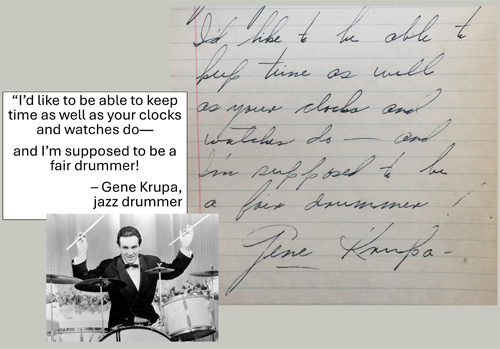 “I’d like to be able to keep
time as well as your clocks
and watches do—
and I’m supposed to be a
fair drummer!
– Gene Krupa,
jazz drummer
I'd like to be able to
keep time as well
as your clocks and
watches do — and
I'm supposed to be
a fair drummer !
Gene Krupa -